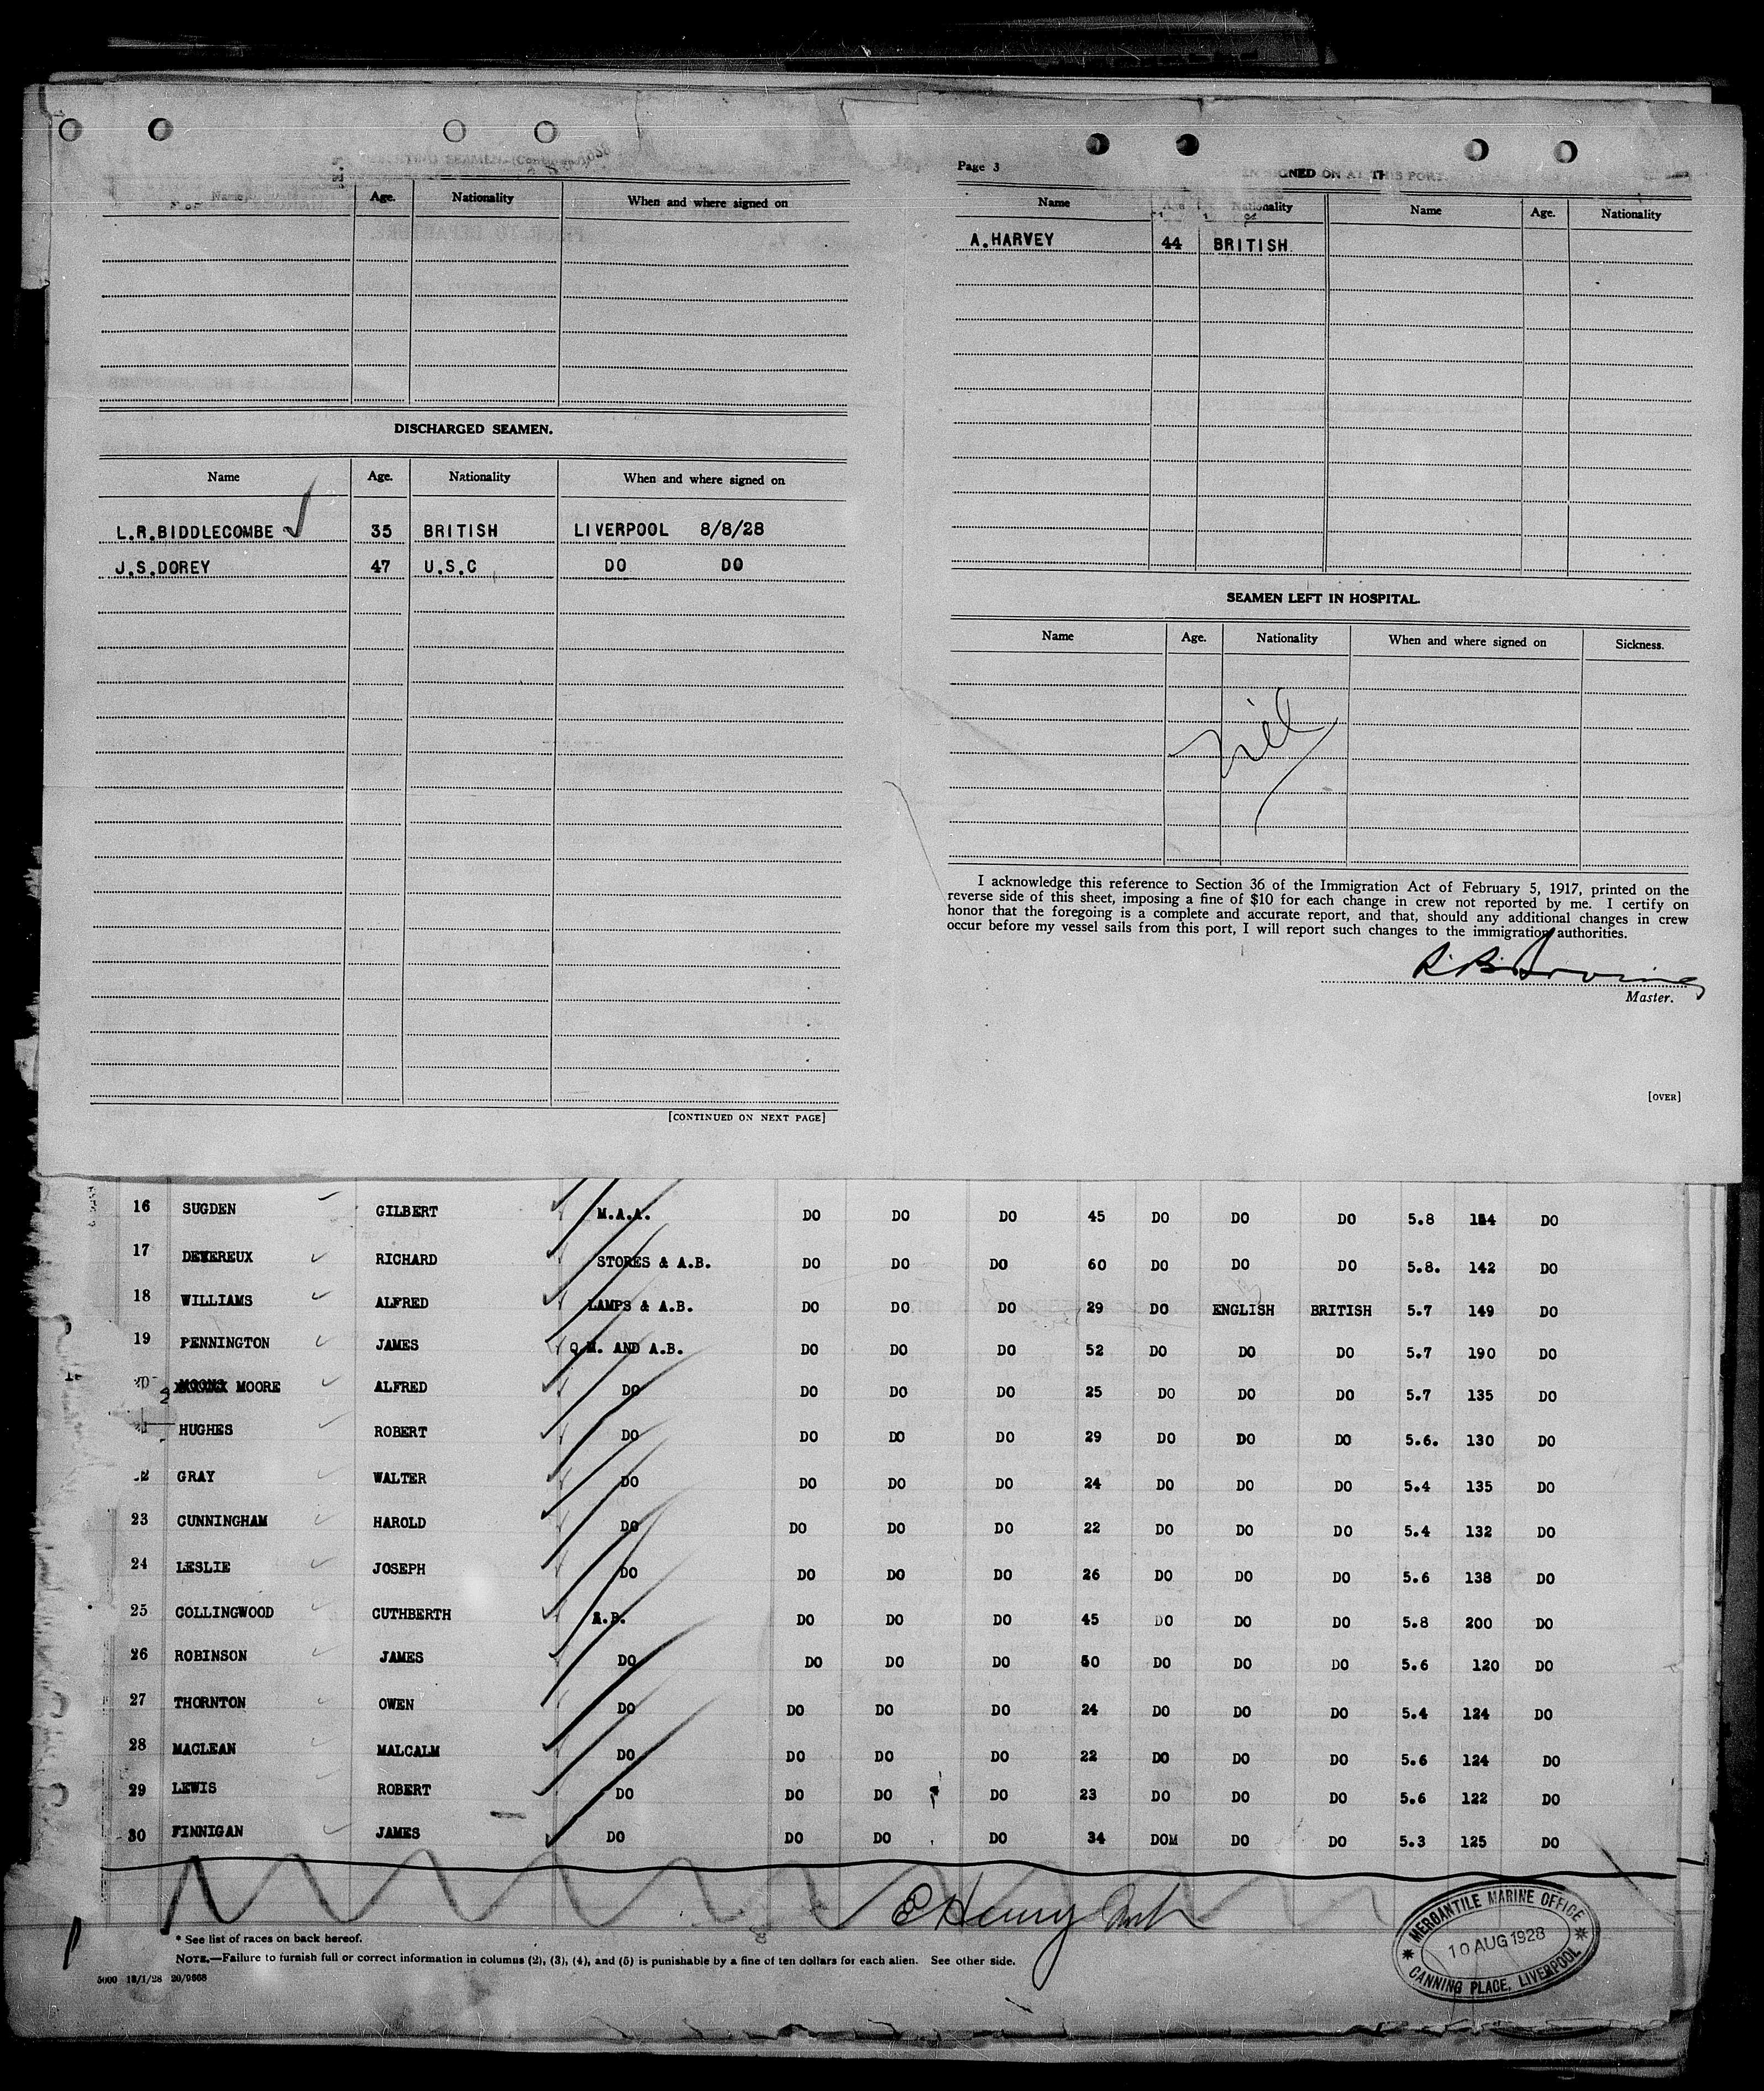 DESERTING SEAMEN. (Continued)
Name Age. Nationality When and where signed on
DISCHARGED SEAMEN.
Name Age. Nationality When and where signed on
L.R.BIDDLECOMBE 35 BRITISH LIVERPOOL 8/8/28
J.S.DOREY 47 U.S.C DO DO
[CONTINUED ON NEXT PAGE]
Page 3
SIGNED ON AT THIS PORT.
Name Age Nationality Name Age. Nationality
A.HARVEY 44 BRITISH
SEAMEN LEFT IN HOSPITAL.
Name Age. Nationality When and where signed on Sickness.
nil
I acknowledge this reference to Section 36 of the Immigration Act of February 5, 1917, printed on the
reverse side of this sheet, imposing a fine of $10 for each change in crew not reported by me. I certify on
honor that the foregoing is a complete and accurate report, and that, should any additional changes in crew
occur before my vessel sails from this port, I will report such changes to the immigration authorities.
R.B. Irving
Master.
[OVER]
16 SUGDEN GILBERT M.A.A. DO DO DO 45 DO DO DO 5.8 184 DO
17 DEVEREUX RICHARD STORES & A.B. DO DO DO 60 DO DO DO 5.8. 142 DO
18 WILLIAMS ALFRED LAMPS & A.B. DO DO DO 29 DO ENGLISH BRITISH 5.7 149 DO
19 PENNINGTON JAMES Q.M. AND A.B. DO DO DO 52 DO DO DO 5.7 190 DO
20 MOORE ALFRED DO DO DO DO 25 DO DO DO 5.7 135 DO
HUGHES ROBERT DO DO DO DO 29 DO DO DO 5.6. 130 DO
2 GRAY WALTER DO DO DO DO 24 DO DO DO 5.4 135 DO
23 CUNNINGHAM HAROLD DO DO DO DO 22 DO DO DO 5.4 132 DO
24 LESLIE JOSEPH DO DO DO DO 26 DO DO DO 5.6 138 DO
25 COLLINGWOOD CUTHBERTH A.B. DO DO DO 45 DO DO DO 5.8 200 DO
26 ROBINSON JAMES DO DO DO DO 50 DO DO DO 5.6 120 DO
27 THORNTON OWEN DO DO DO DO 24 DO DO DO 5.4 124 DO
28 MACLEAN MALCALM DO DO DO DO 22 DO DO DO 5.6 124 DO
29 LEWIS ROBERT DO DO DO DO 23 DO DO DO 5.6 122 DO
30 FINNIGAN JAMES DO DO DO DO 34 DOM DO DO 5.3 125 DO
E Henry
* See list of races on back hereof.
NOTE.—Failure to furnish full or correct information in columns (2), (3), (4), and (5) is punishable by a fine of ten dollars for each alien. See other side.
5000 12/1/28 20/9868
MERCANTILE MARINE OFFICE
10 AUG 1928
CANNING PLACE, LIVERPOOL